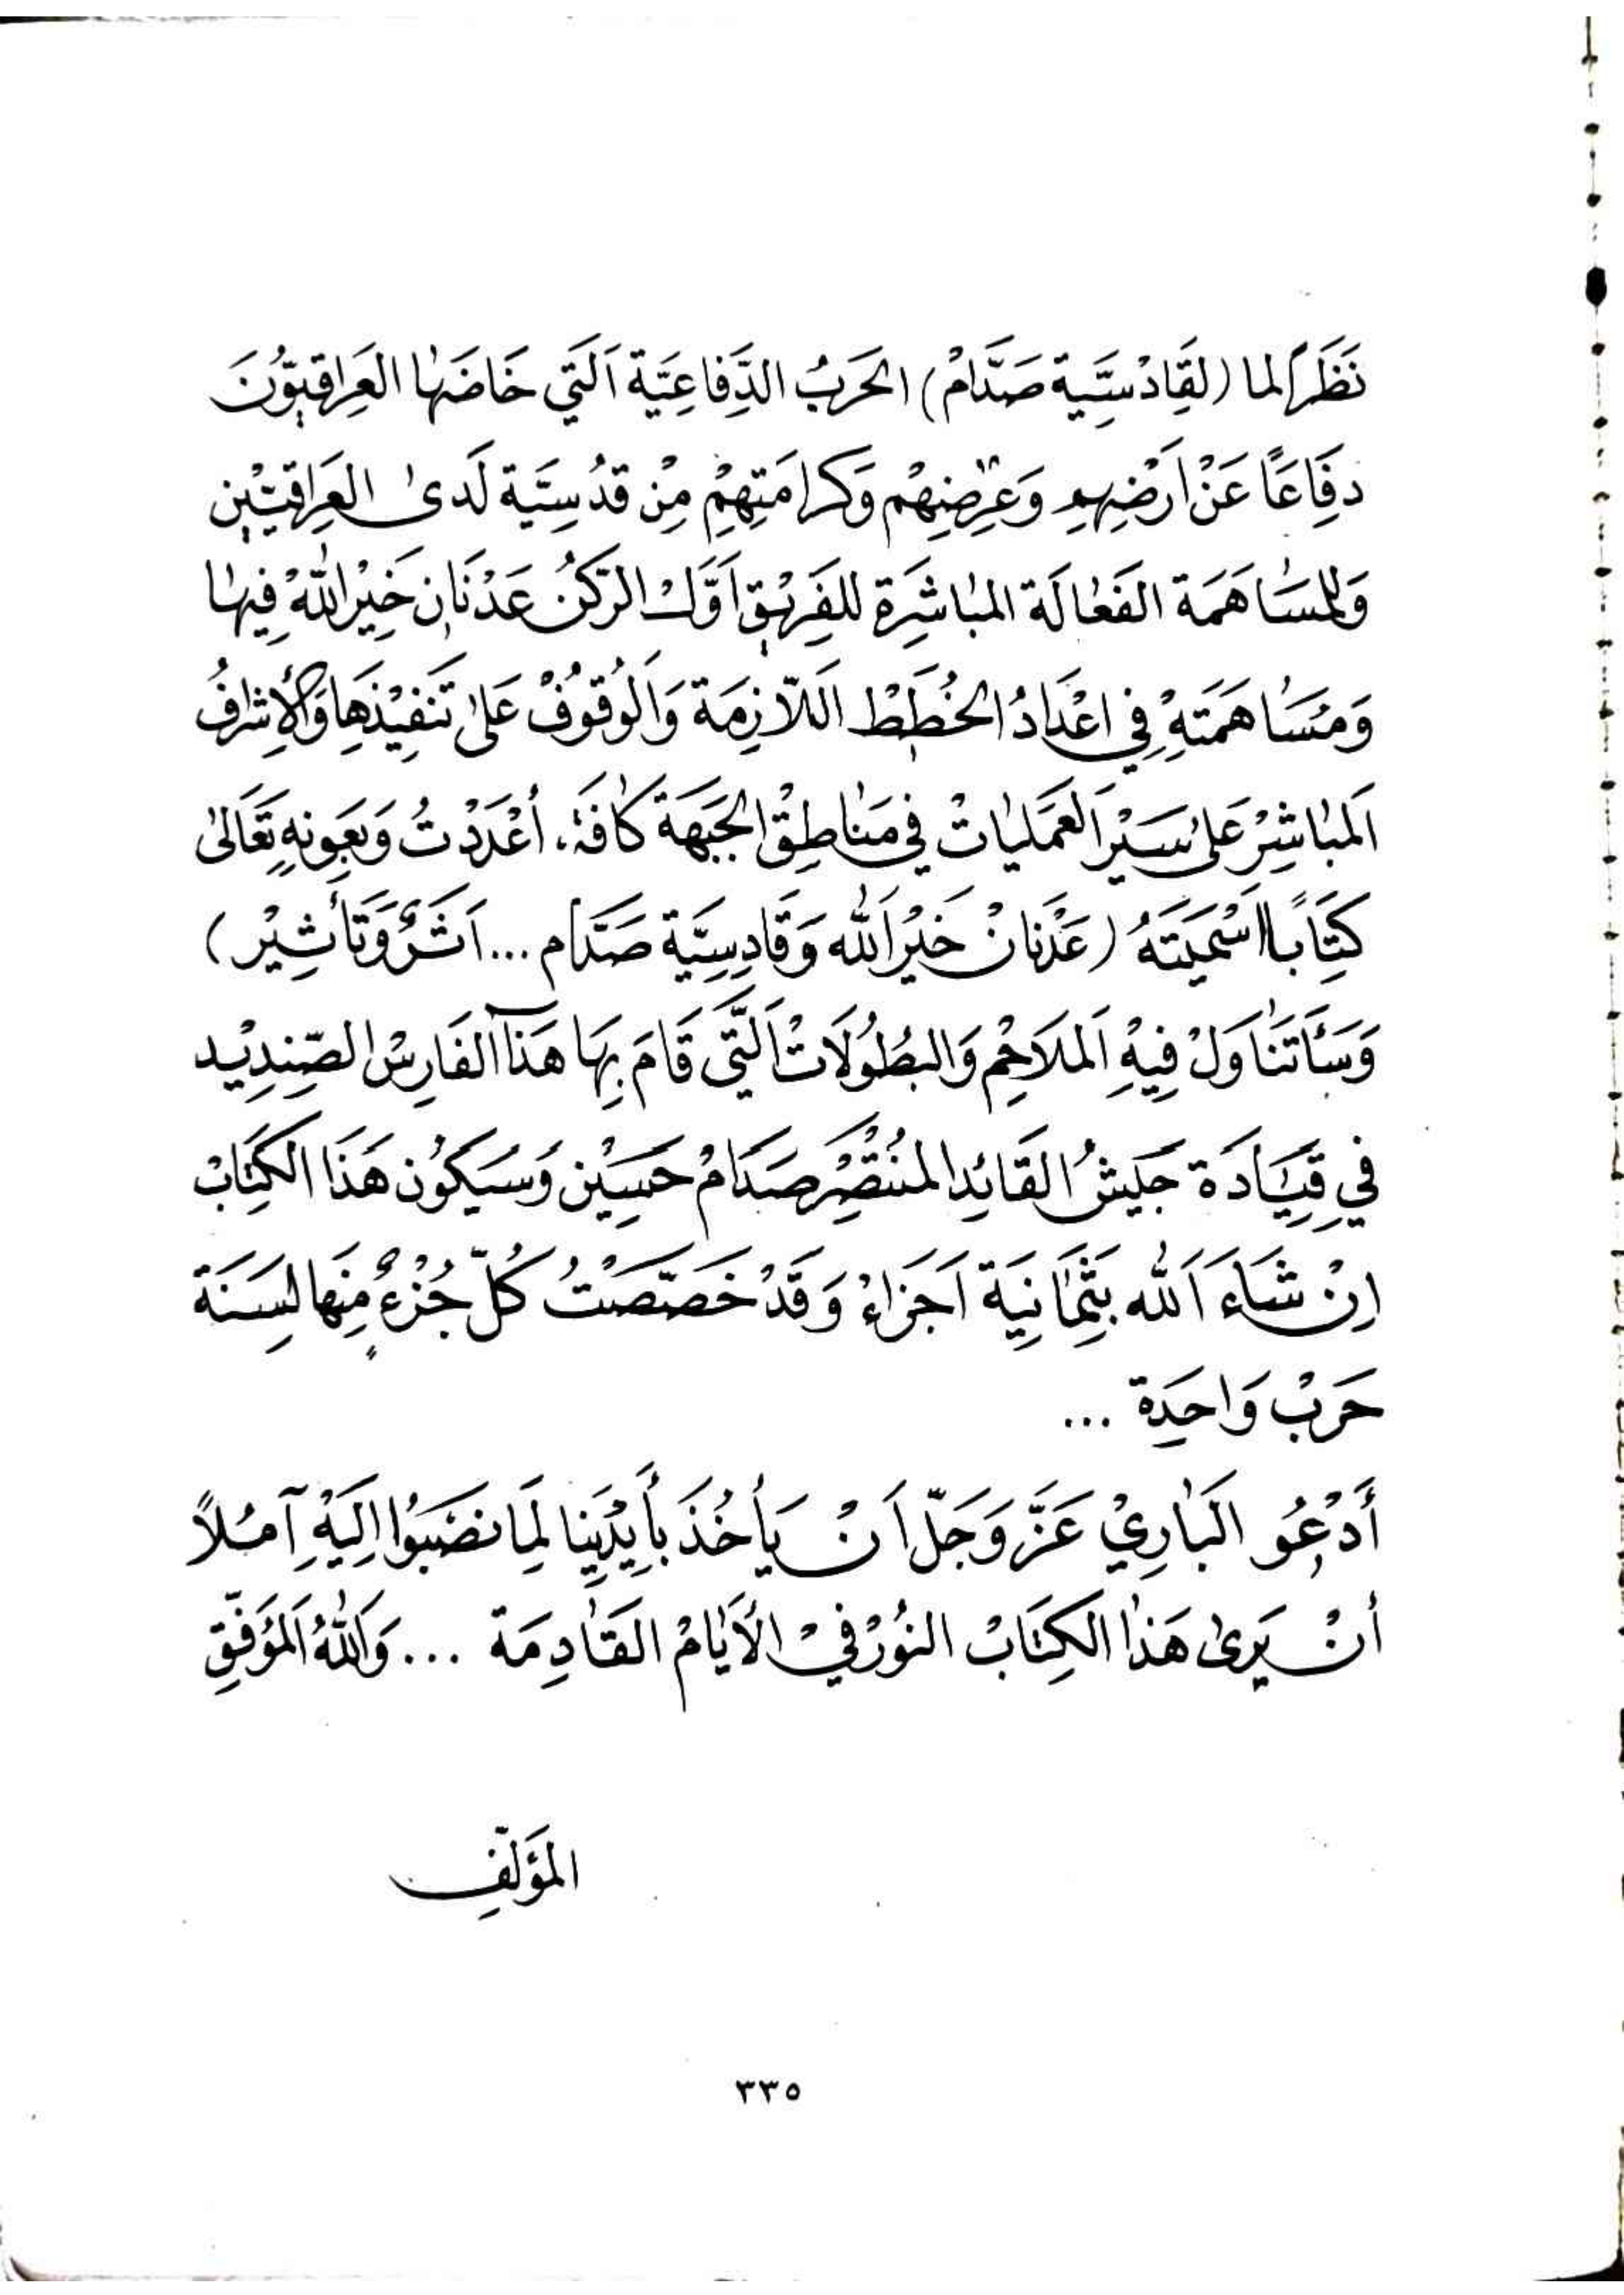 نَظَراً لما (لقَادْسِيَّية صَدَّامْ) الحَربُ الدِّفاعِيَّة اَلتَي خَاضَها العِراقيوُّنَ
دفِاعَاً عَنْ اَرضِهِم وَعَرِضِهُم وَكرامَتِهِمُ مِنْ قدُسِيَّة لَدىٰ العِراقييّنِ
وَللمسَاهَمَة الفَعالَة المباشَرِة للفَريْق اَوَّل الرّكنُ عَدْنَان خَيْرالله فيهٰا
وَمُسَاهمَتَهِ في اعْدَادُ الخُطَطْ اللاّزِمَة وَاَلوُقوُفْ عَلىٰ تَنفِيْذهِا وَالأِشرافُ
اَلمباشِرْ عَلىٰ سَيْر اَلعَمَليٰاتْ في مَناطِقْ الجَبَهة كافَة، أعْدَدْتُ وَبعَونهِ تَعَالىٰ
كتِاَباً اسْمَيتَهُ (عَدْنانْ خَيْر اَلله وَقَادِسِيَّة صَدَّام ... اَثَرٌ وَتَأثِيْر)
وَسَأتَناوَلْ فِيْهِ اَلملَاحِم وَالبطُولَاتْ اَلتَّى قَامَ بِهَا هَذا آلفَارِسْ الصّنِدِيْد
في قيَادَة جَيشُ القَائدِ المنُتْصِر صَدَامْ حسَيْن وَسَيكوُن هَذَا الكِتَابْ
اِنْ شَاءَ اَلله بثَمٰانِيَة اَجَزاءْ وَقَدْ خَصّصَتْ كُلّ جُزْءٌ مِنَها لسِنَة
حَربْ وَاحدَة ...
أَدْعُو البَارِيْ عَزَّ وَجَلّ اَنْ يَأخُذَ بأَيْدِيَنا لِمَا نصَبوُا اِليَهْ آمُلاً
أنْ يَرىٰ هَذا الكِتَابْ النُورْ فيْ الأيَامْ القَادِمَة ... وَاللهُ اَلمُؤَفّقِ
المؤَلّفِ
٣٣٥